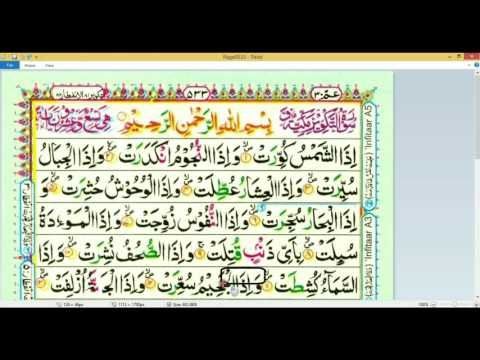 Paint
File
Home
View
عمّ ٣٠
٥٣٣
بِسْمِ اللّٰهِ الرَّحْمٰنِ الرَّحِيْمِ
اِذَا الشَّمْسُ كُوِّرَتْ وَاِذَا النُّجُوْمُ انْكَدَرَتْ وَاِذَا الْجِبَالُ
سُيِّرَتْ وَاِذَا الْعِشَارُ عُطِّلَتْ وَاِذَا الْوُحُوْشُ حُشِرَتْ
وَاِذَا الْبِحَارُ سُجِّرَتْ وَاِذَا النُّفُوْسُ زُوِّجَتْ وَاِذَا الْمَوْءٗدَةُ
سُئِلَتْ بِاَيِّ ذَنْۢبٍ قُتِلَتْ وَاِذَا الصُّحُفُ نُشِرَتْ وَاِذَا
السَّمَآءُ كُشِطَتْ وَاِذَا الْجَحِيْمُ سُعِّرَتْ وَاِذَا الْجَنَّةُ اُزْلِفَتْ
Infitaar A5
Infitaar A3
100%